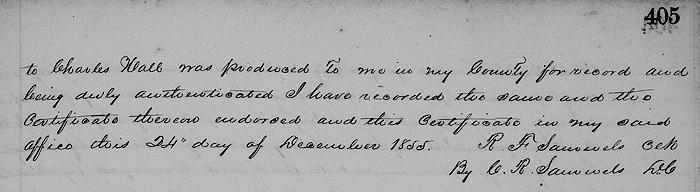 405
to Charles Hall was produced to me in my County for record and
being duly authenticated I have recorded the same and the
Certificate thereon endorsed and this Certificate in my said
office this 24" day of December 1855. R. F. Samuels Clk
By C. R. Samuels D.C